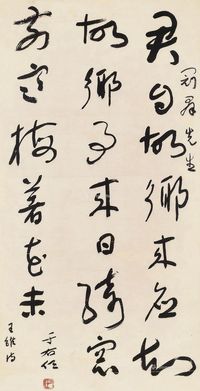 冠群先生
君自故鄉來應知
故鄉事來日綺窗
前寒梅著花未
于右任
王維詩